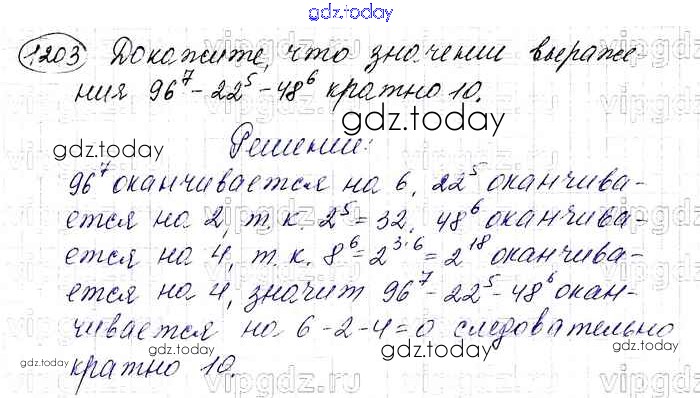 gdz.today
1203 Докажите, что значении выраже-
ния 96⁷ - 22⁵ - 48⁶ кратно 10.
gdz.today
Решении:
gdz.today
96⁷ оканчивается на 6, 22⁵ оканчива-
ется на 2, т. к. 2⁵ = 32, 48⁶ оканчива-
ется на 4, т. к. 8⁶ = 2³·⁶ = 2¹⁸ оканчива-
ется на 4, значит 96⁷ - 22⁵ - 48⁶ окан-
чивается на 6 - 2 - 4 = 0 следовательно
gdz.today gdz.today gdz.today
кратно 10.
vipgdz.ru